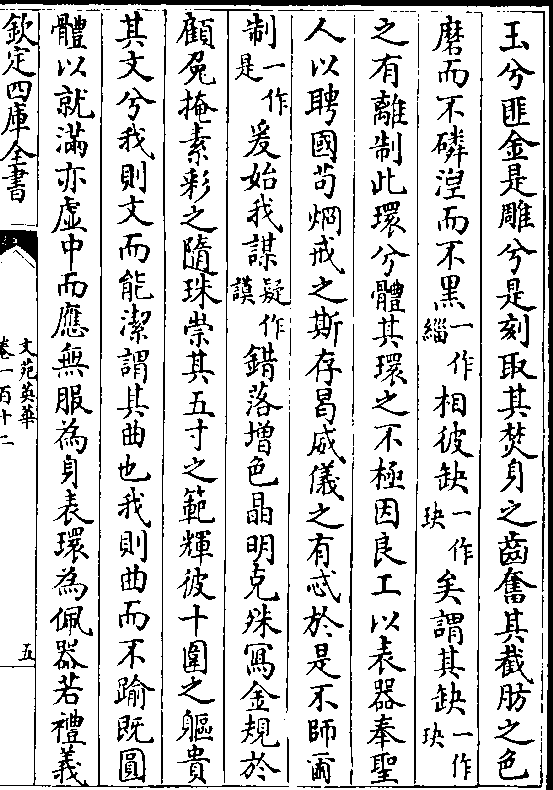 玉兮匪金是雕兮是刻取其焚身之齒奮其截肪之色
磨而不磷湼而不黑一作緇相彼缺一作玦矣謂其缺一作玦
之有離制此環兮體其環之不極因良工以表器奉聖
人以聘國苟烱戒之斯存曷威儀之有忒於是不師爾
制一作是爰始我謀疑作謨錯落增色晶明克殊寫金規於
顧兔掩素彩之隨珠崇其五寸之範輝彼十圍之軀貴
其文兮我則文而能潔謂其曲也我則曲而不踰既圓
體以就滿亦虛中而應無服為身表環為佩器若禮義
欽定四庫全書
文苑英華
卷一百十二
五